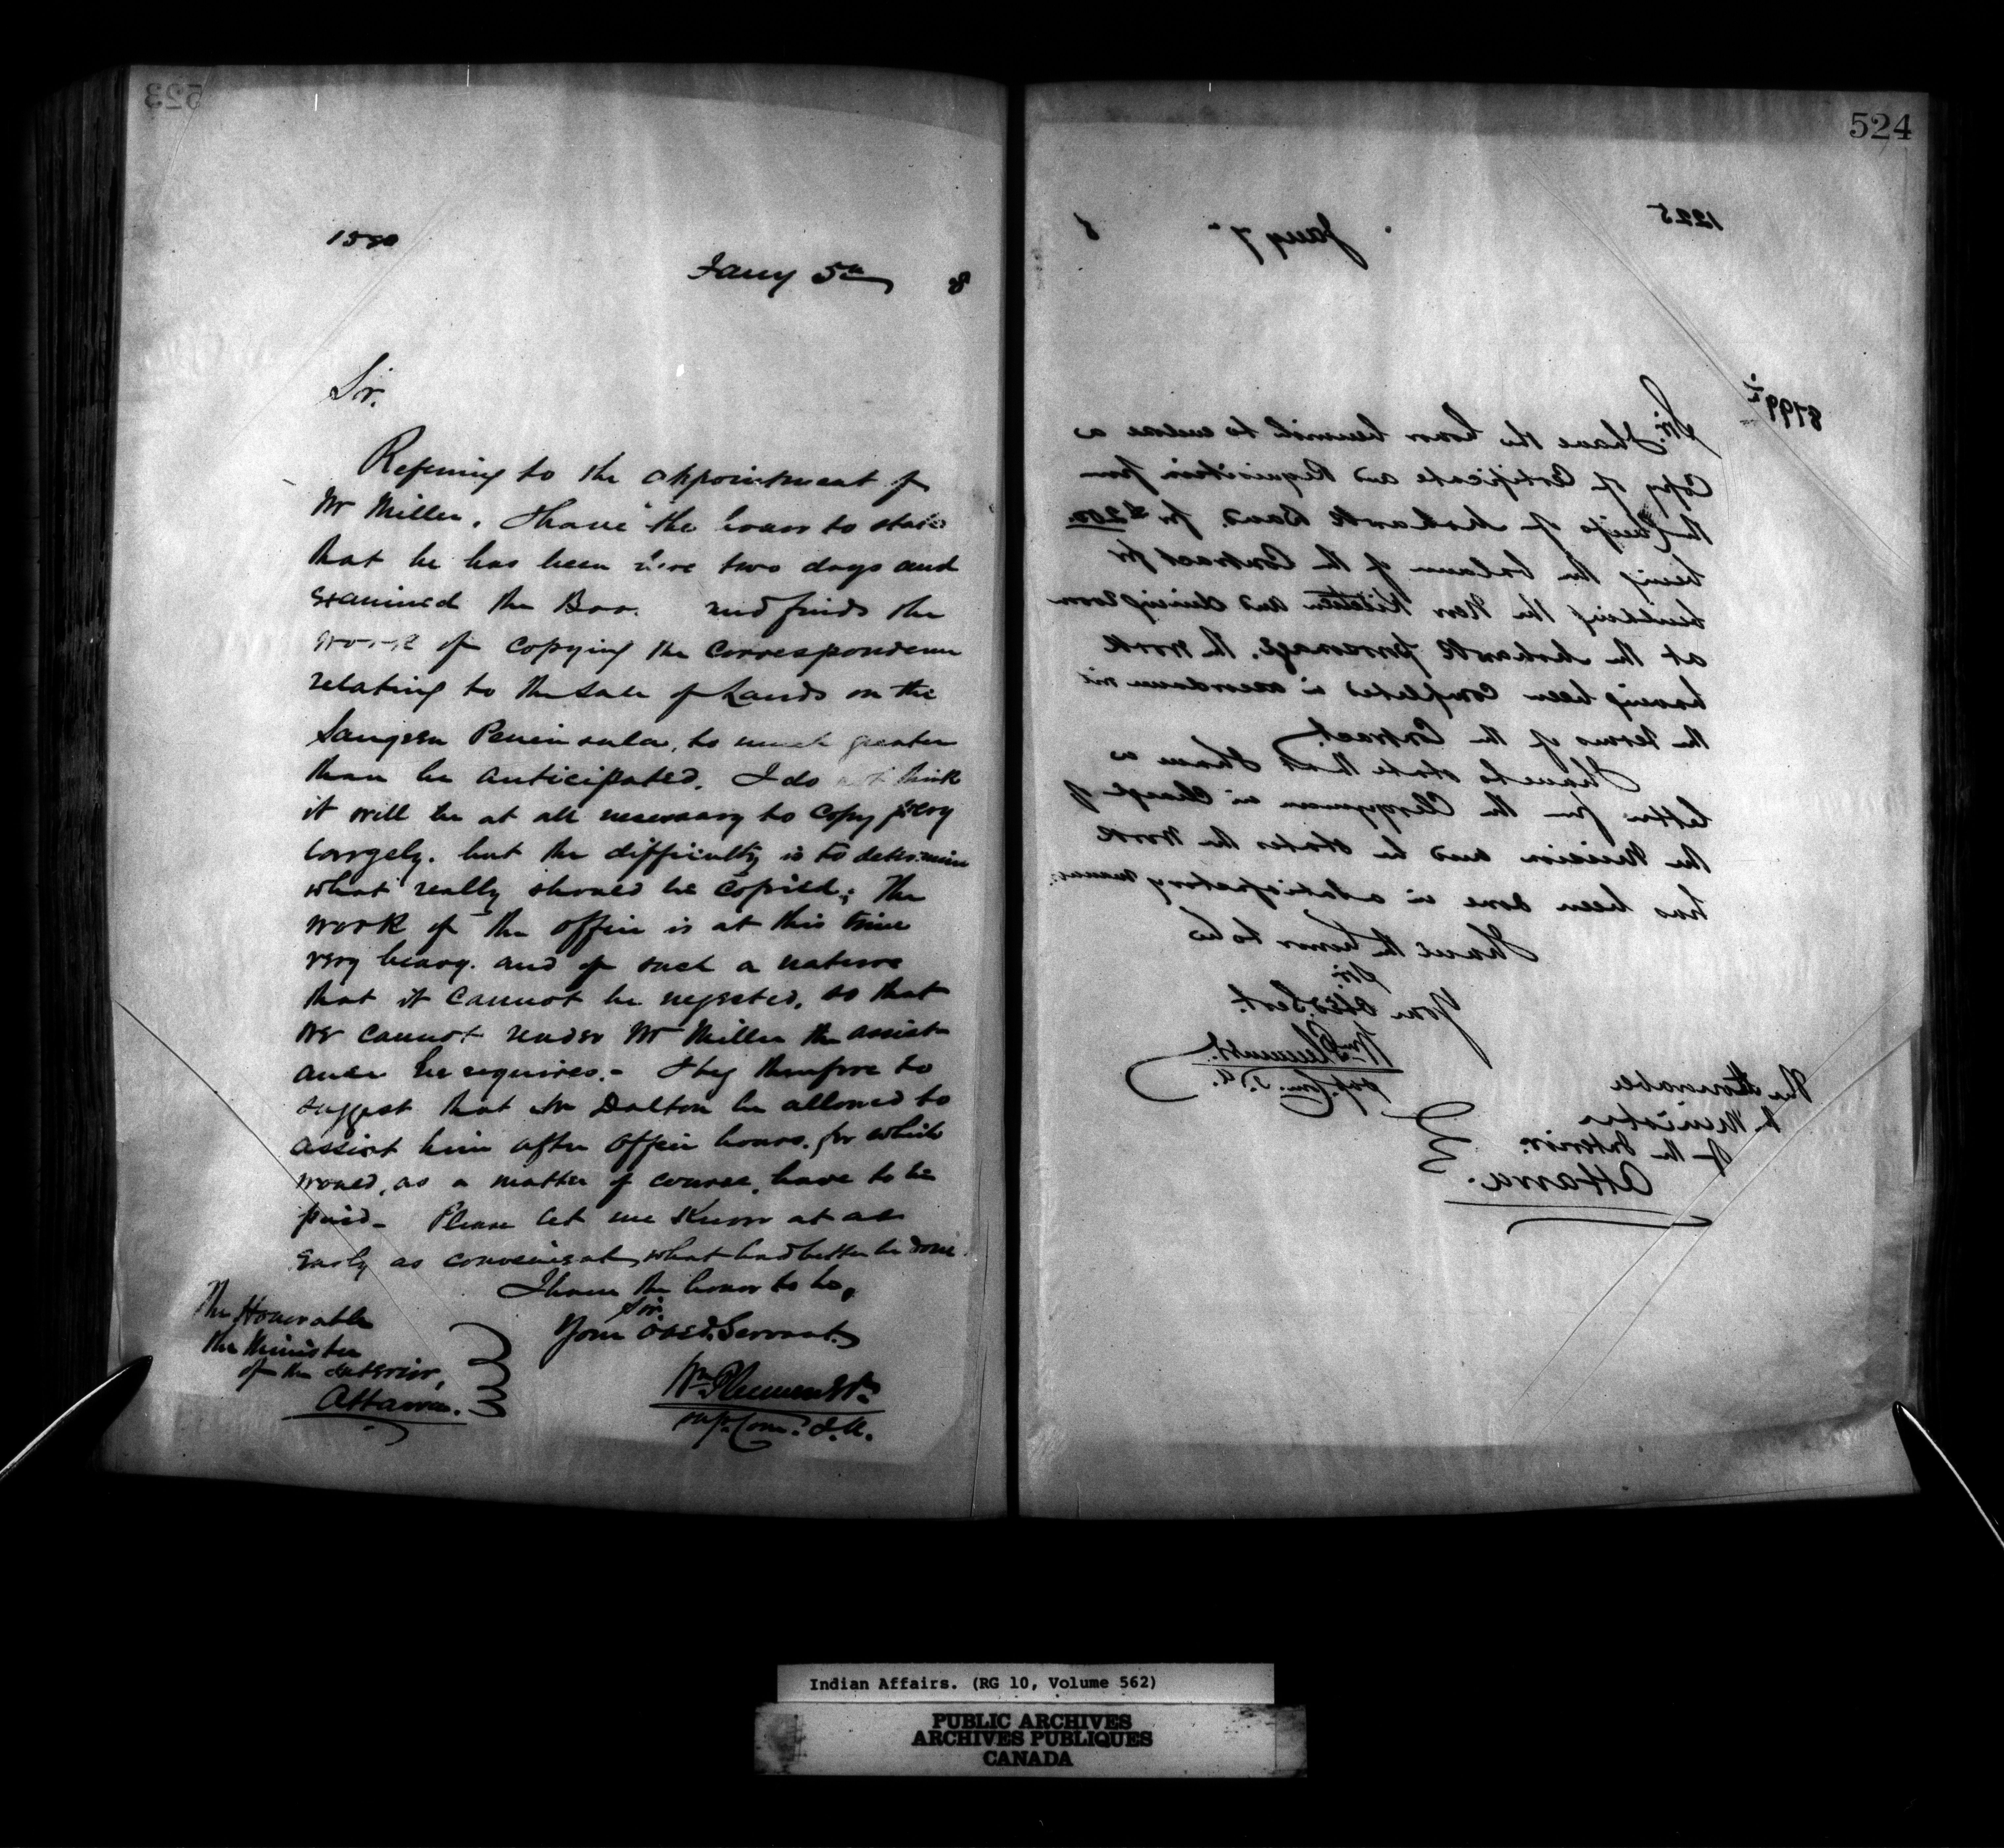 523
Jany 5th 8
Sir.
Referring to the appointment of
Mr Miller. I have the honor to state
that he has been here two days and
examined the and finds the
work of copying the correspondence
relating to the sale of Lands on the
Saugeen Peninsula, to much greater
than he anticipated. I do not think
it will be at all necessary to copy very
largely. but the difficulty is to determine
what really should be copied; The
work of the office is at this time
very heavy. and of such a nature
that it cannot be neglected, so that
we cannot render Mr Miller the assist
ance he requires.- I beg therefore to
suggest that Mr Dalton be allowed to
assist him after office hours, for which
would, as a matter of course, have to be
paid- Please let me know at as
early as convenient what had better be done.
I have the honor to be,
Sir.
Your Obedt. Servant.
Wm Plummer
Supt. Comr. I.A.
The Honorable
the Minister
of the Interior,
Ottawa.
524
1225
Jany 7th 8
Sir. I have the honor herewith to enclose a
Copy of Certificate and Requisition from
the Chiefs of Mohawk Band, for $200.
being the balance of the Contract for
building the New Kitchen and dining room
at the Mohawk parsonage, the work
having been completed in accordance with
the terms of the Contract.
I have to state that I have a
letter from the Clergyman in charge of
the Mission and he states the work
has been done in a satisfactory manner.
I have the honor to be
Sir.
Your Obed. Sert.
Wm Plummer.
Supt. Com. I.A.
The Honorable
the Minister
of the Interior.
Ottawa.
Indian Affairs. (RG 10, Volume 562)
PUBLIC ARCHIVES
ARCHIVES PUBLIQUES
CANADA